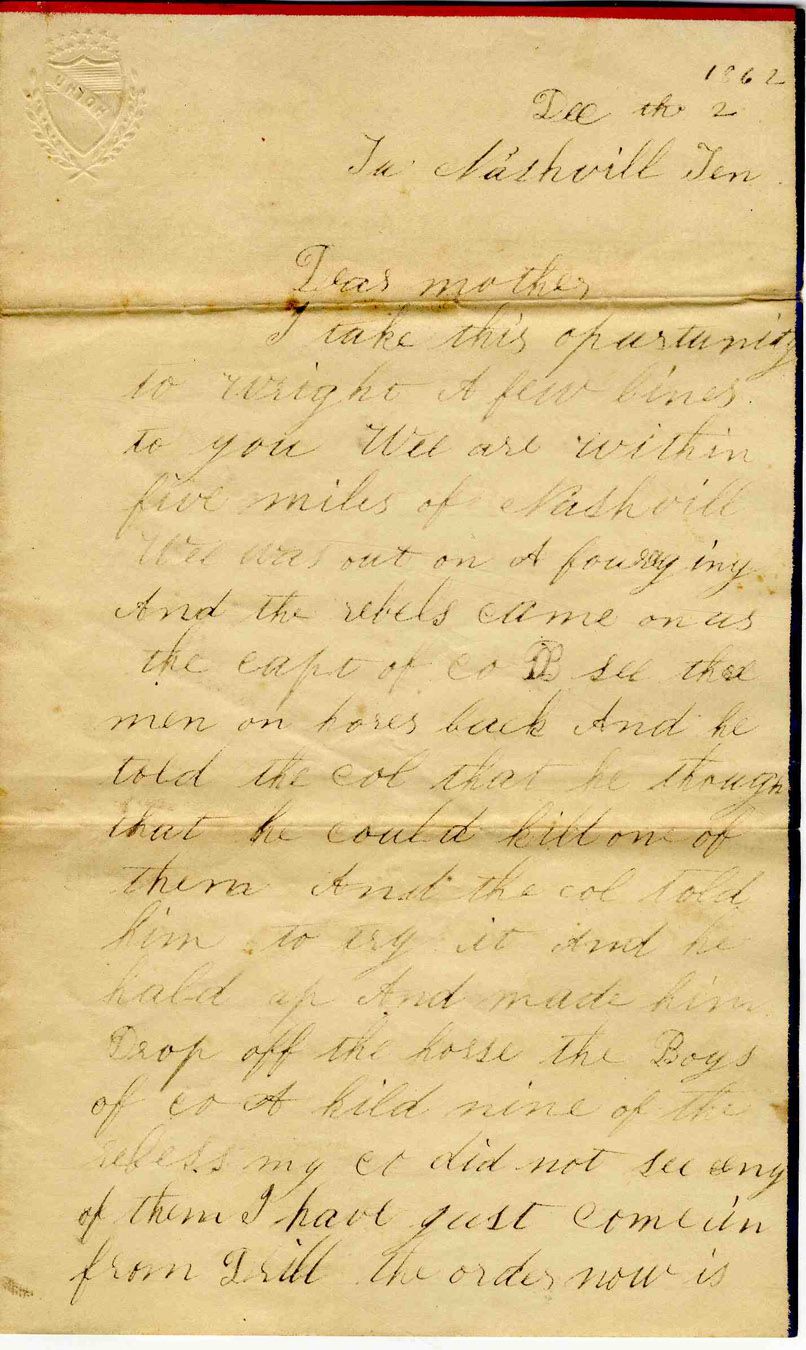 UNION
1862
Dec th 2
Nashvill Ten
Dear mother
I take this opurtunity
to wright A few lines
to you Wee are within
five miles of Nashvill
Wee was out on A
And the rebels came on us
the capt of co B see
men on hores back And he
told the col that he though
that he could kill one of
them And the col told
him to try it And he
hald up And made him
Drop off the horse the Boys
of co A kild nine of the
rebels my co did not see eny
of them I have just come in
from Drill the order now is